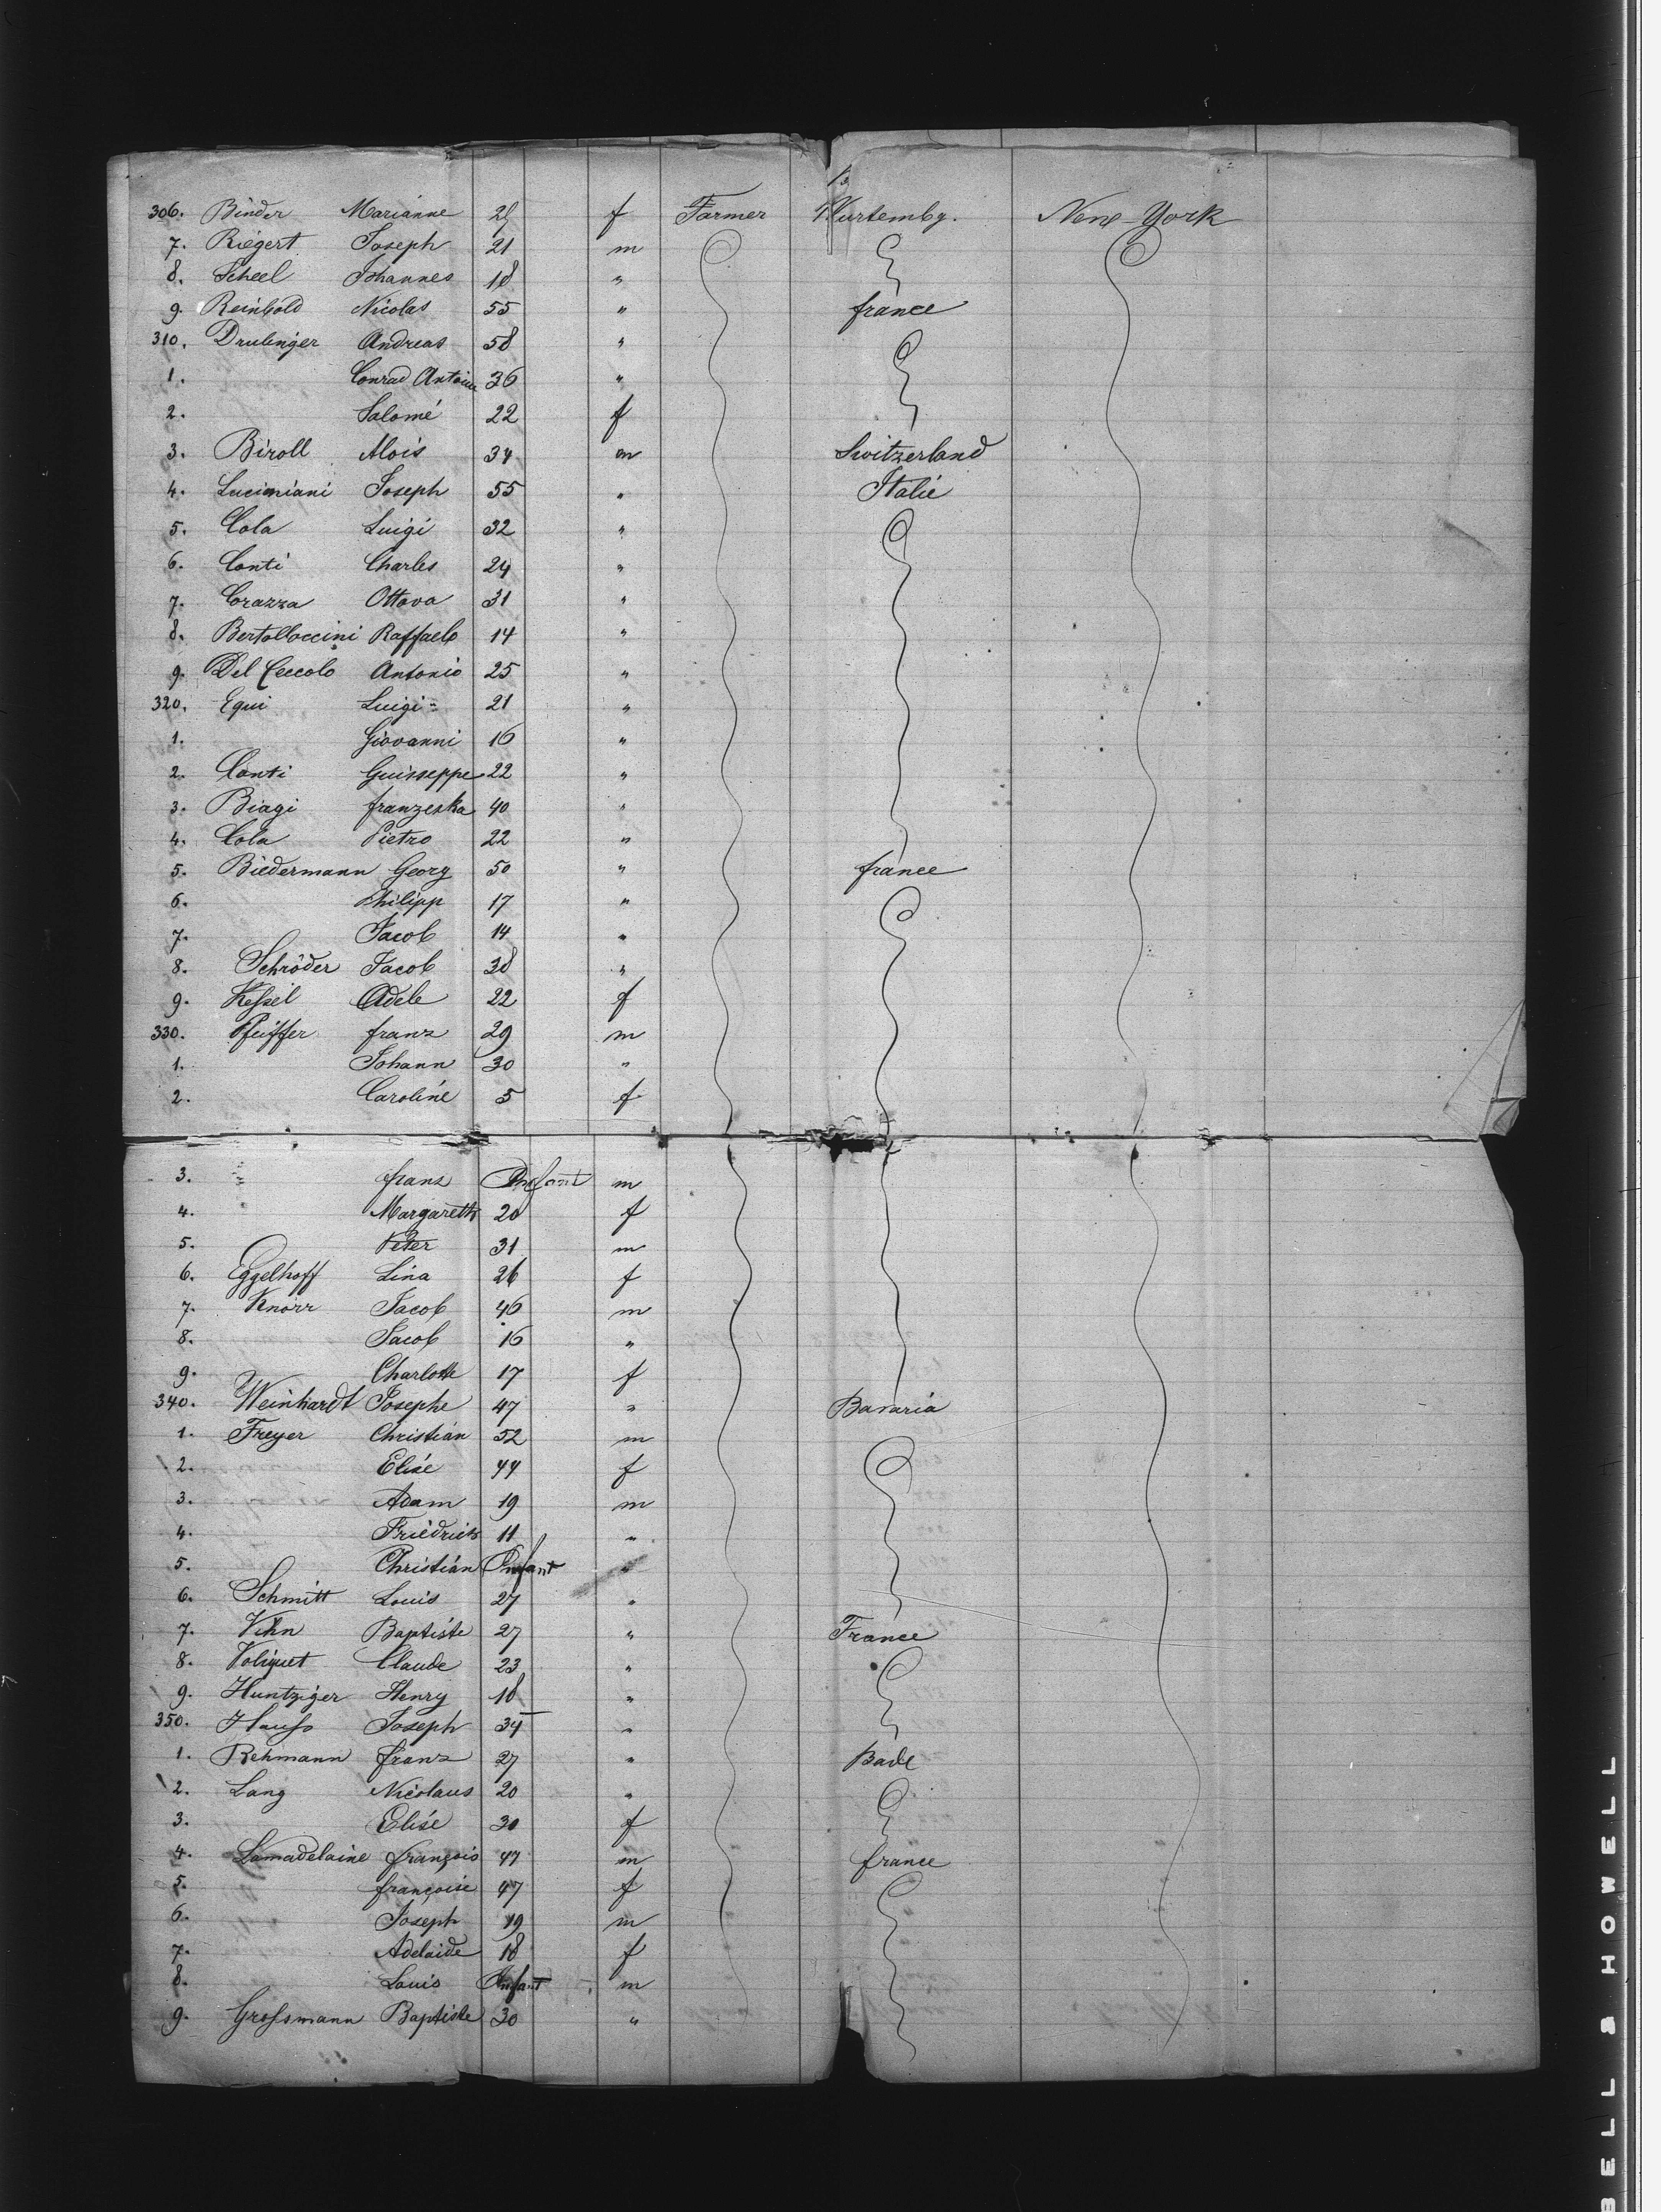 306. Binder Marianne 28 f Farmer Wurtembg. New-York
7. Riegert Joseph 21 m
8. Scheel Johannes 18 "
9. Reinbold Nicolas 55 " france
310. Drulinger Andreas 58 "
1. Conrad Antoine 36 "
2. Salomé 22 f
3. Biroll Alois 34 m Switzerland
4. Lucimiani Joseph 55 " Italie
5. Cola Luigi 32 "
6. Conti Charles 24 "
7. Corazza Ottavo 31 "
8. Bertolloccini Raffaelo 14 "
9. Del Ceccolo Antonio 25 "
320. Equi Luigi 21 "
1. Giovanni 16 "
2. Conti Guisseppe 22 "
3. Biagi franzeska 40 "
4. Cola Pietro 22 "
5. Biedermann Georg 50 " france
6. Philipp 17 "
7. Jacob 14 "
8. Schröder Jacob 38 "
9. Keßel Adele 22 f
330. Pfeiffer franz 29 m
1. Johann 30 "
2. Caroline 5 f
3. franz Infant m
4. Margareth 20 f
5. Peter 31 m
6. Eggelhoff Lina 26 f
7. Knörr Jacob 46 m
8. Jacob 16 "
9. Charlotte 17 f
340. Weinhardt Josephe 47 " Bavaria
1. Freyer Christian 52 m
2. Elise 44 f
3. Adam 19 m
4. Friedrich 11 "
5. Christian Infant "
6. Schmitt Louis 27 "
7. Vihn Baptiste 27 " France
8. Voliquet Claude 23 "
9. Huntziger Henry 18 "
350. Hauß Joseph 34 "
1. Rehmann franz 27 " Bade
2. Lang Nicolaus 20 "
3. Elise 30 f
4. Lamadelaine françois 47 m france
5. françoise 47 f
6. Joseph 19 m
7. Adelaide 18 f
8. Louis Infant m
9. Großmann Baptiste 30 "
BELL & HOWELL